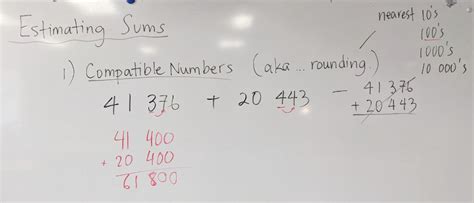 Estimating Sums
nearest 10's
100's
1000's
10 000's
1) Compatible Numbers (aka... rounding.)
41 376 + 20 443 — 41 376
+ 20 443
41 400
+ 20 400
61 800